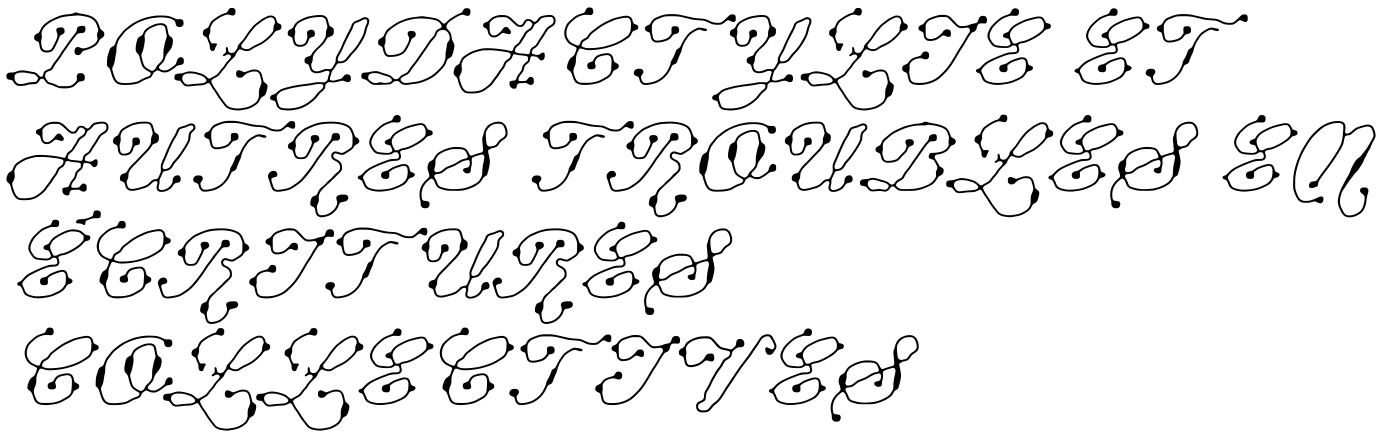 POLYDACTYLIE ET
AUTRES TROUBLES EN
ÉCRITURES
COLLECTIVES